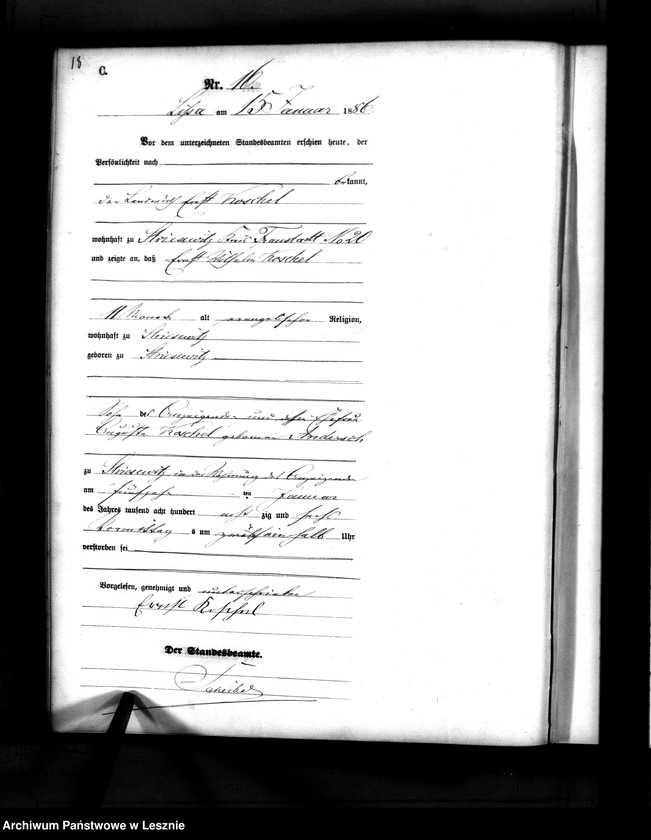 18
C.
Nr. 16
Lissa am 15 Januar 1886
Vor dem unterzeichneten Standesbeamten erschien heute, der
Persönlichkeit nach
bekannt,
der Landwirth Ernst Koschel
wohnhaft zu Striesewitz Kreis Fraustadt No 20
und zeigte an, daß Ernst Wilhelm Koschel
11 Monate alt evangelischer Religion,
wohnhaft zu Striesewitz
geboren zu Striesewitz
Sohn des Anzeigenden und dessen Ehefrau
Auguste Koschel geborenen Andersch
zu Striesewitz in der Wohnung des Anzeigenden
am fünfzehnten Januar
des Jahres tausend acht hundert achtzig und sechs
Vormittags um halb Uhr
verstorben sei
Vorgelesen, genehmigt und unterschrieben
Ernst Koschel
Der Standesbeamte.
Archiwum Państwowe w Lesznie